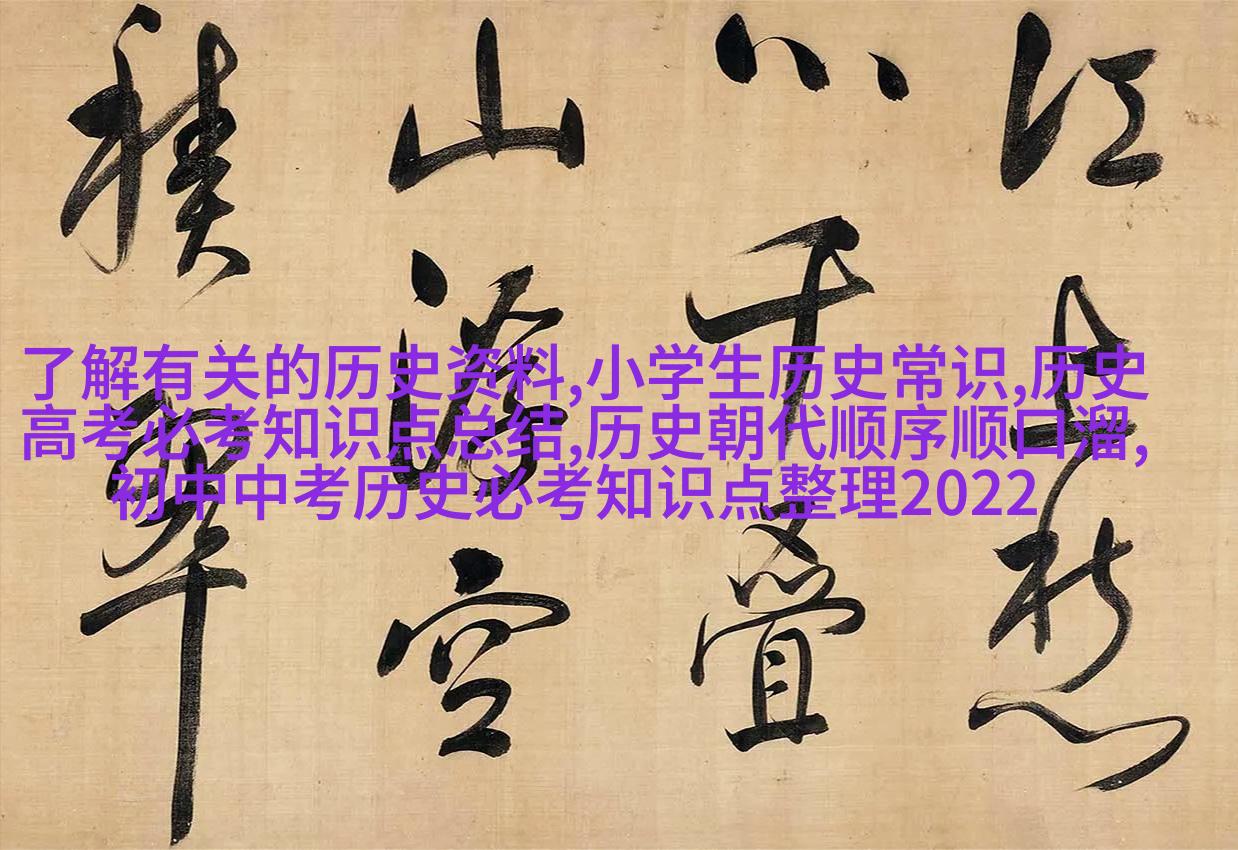 江上愁
心千疊
山浮空
積翠
了解有关的历史资料,小学生历史常识,历史
高考必考知识点总结,历史朝代顺序顺口溜,
初中中考历史必考知识点整理2022